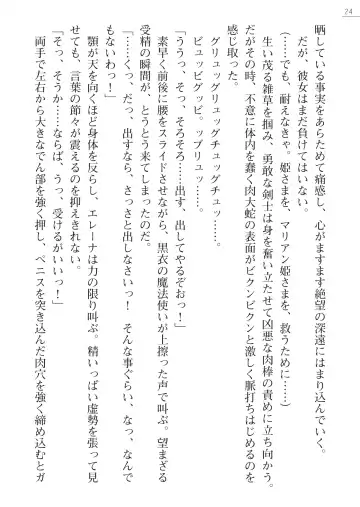 24
晒している事実をあらためて痛感し、心がますます絶望の深遠にはまり込んでいく。
だが、彼女はまだ負けてはいない。
(……でも、耐えなきゃ。姫さまを、マリアン姫さまを、救うために……)
生い茂る雑草を掴み、勇敢な剣士は身を奮い立たせて凶悪な肉棒の責めに立ち向かう。
だがその時、不意に体内を蠢く肉大蛇の表面がビクンビクンと激しく脈打ちはじめるのを
感じ取った。
グリュッグリュッグチュッグチュッ……。
ビュッピグッピ、ップリュッ……。
「ううっ、そっ、そろそろ……出す、出してやるぞおっ！」
素早く前後に腰をスライドさせながら、黒衣の魔法使いが上擦った声で叫ぶ。望まざる
受精の瞬間が、とうとう来てしまったのだ。
「……くっ、だっ、出すなら、さっさと出しなさいっ！　そんな事ぐらい、なっ、なんで
もないわっ！」
顎が天を向くほど身体を反らし、エレーナは力の限り叫ぶ。精いっぱい虚勢を張って見
せても、言葉の節々が震えるのを抑えきれない。
「そっ、そうか……ならば、うっ、受けるがいいっ！」
両手で左右から大きなでん部を強く押し、ペニスを突き込んだ肉穴を強く締め込むとガ